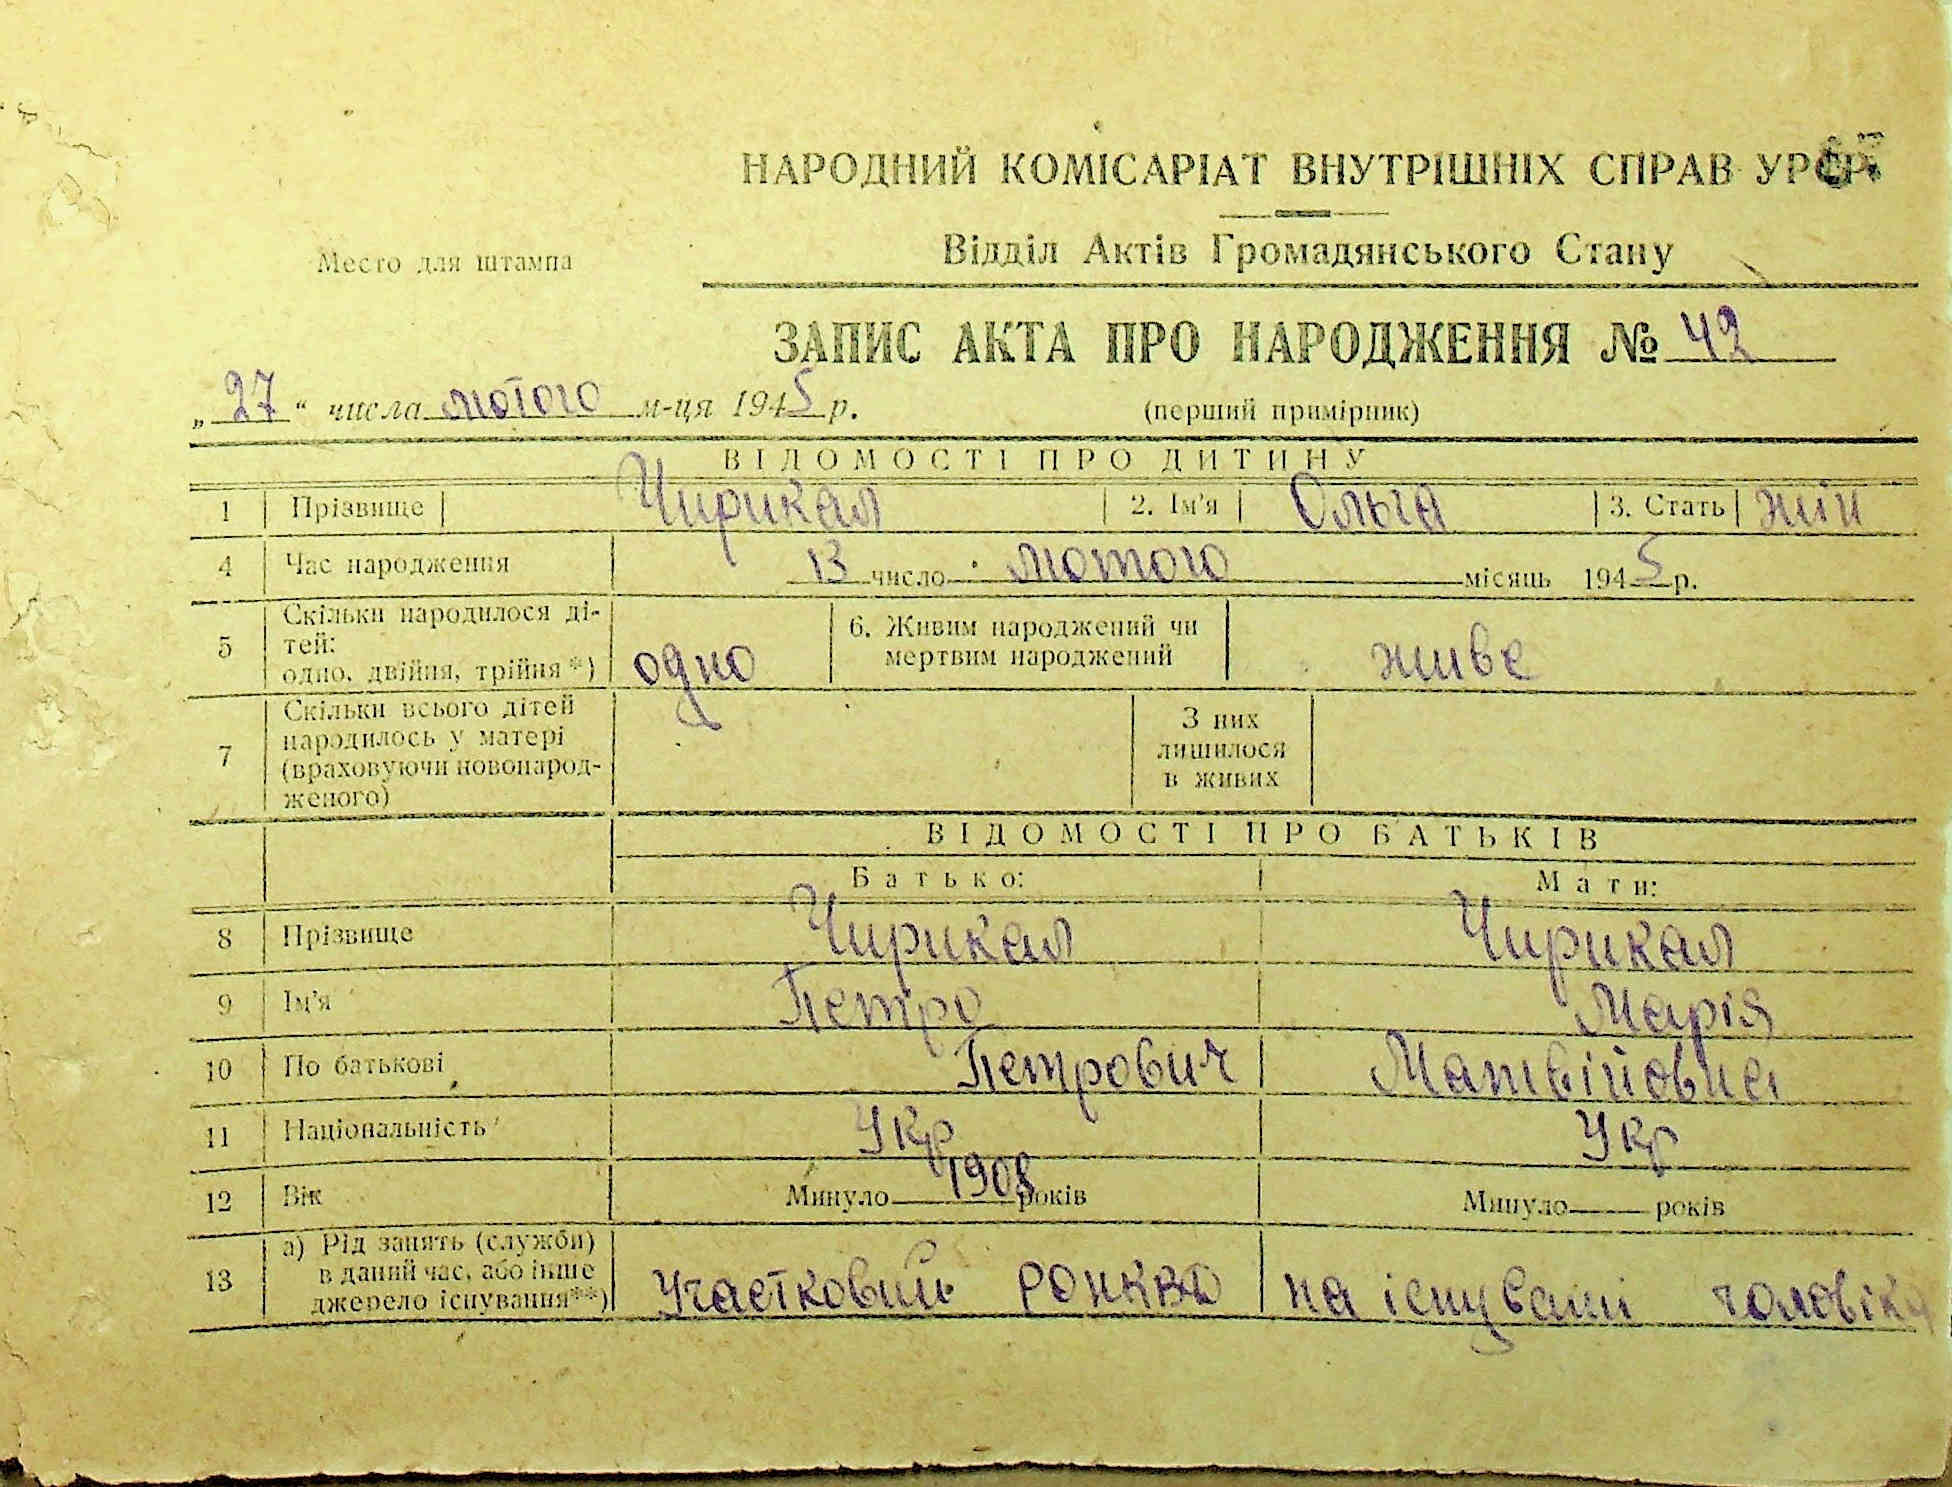 НАРОДНИЙ КОМІСАРІАТ ВНУТРІШНІХ СПРАВ УРСР
Место для штампа
Відділ Актів Громадянського Стану
ЗАПИС АКТА ПРО НАРОДЖЕННЯ № 42
„27“ числа лютого м-ця 1945 р.
(перший примірник)
ВІДОМОСТІ ПРО ДИТИНУ
1 Прізвище Чирикал 2. Ім'я Ольга 3. Стать жін
4 Час народження 13 число лютого місяць 1945 р.
5 Скільки народилося ді-
тей:
одно, двійня, трійня*) одно
6. Живим народжений чи
мертвим народжений живе
7 Скільки всього дітей
народилось у матері
(враховуючи новонарод-
женого)
З них
лишилося
в живих
ВІДОМОСТІ ПРО БАТЬКІВ
Батько: Мати:
8 Прізвище Чирикал Чирикал
9 Ім'я Петро Марія
10 По батькові Петрович Матвійовна
11 Національність Укр Укр
12 Вік Минуло 1908 років Минуло років
13 а) Рід занять (служби)
в даний час, або інше
джерело існування**) Участковий РОНКВД на існуванні чоловіка